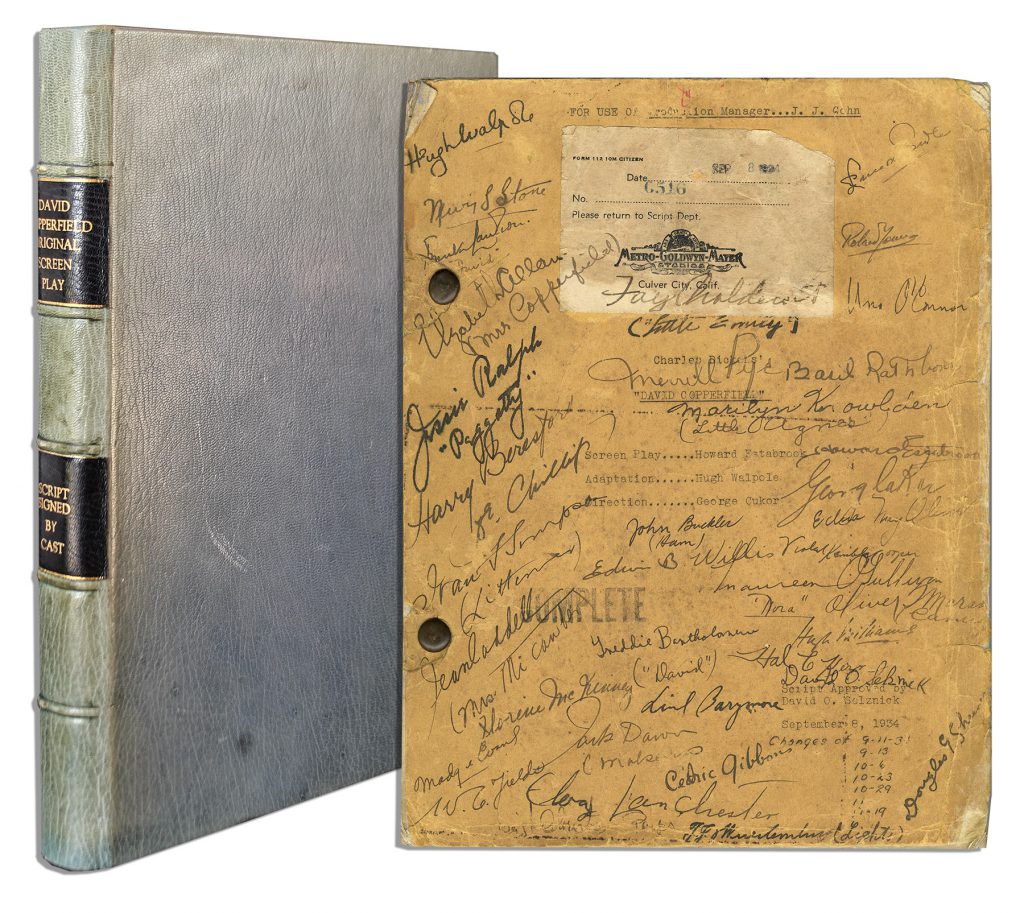 DAVID
COPPERFIELD
ORIGINAL
SCREEN
PLAY
SCRIPT
SIGNED
BY
CAST
FOR USE OF Production Manager...J. J. Cohn
FORM 112 10M CITIZEN
Date SEP 8 1934
No. C516
Please return to Script Dept.
METRO-GOLDWYN-MAYER
STUDIOS
Culver City, Calif.
Hugh Walpole
Lewis S Stone
Frank Lawton
David
Elizabeth Allan
(Mrs Copperfield)
Roland Young
Una O'Connor
("Little Emily")
Jessie Ralph
"Peggotty"
Charles Dickens'
"DAVID COPPERFIELD"
Merrill Pye
Basil Rathbone
Marilyn Knowlden
(Little Agnes)
Harry Beresford
Dr. Chillip
Screen Play.....Howard Estabrook
Howard Estabrook
Adaptation......Hugh Walpole
Direction.......George Cukor
George Cukor
John Buckler
(Ham)
Edna May Oliver
Edwin B Willis
Violet Kemble Cooper
Ivan F Simpson
(Littimer)
Maureen O'Sullivan
"Dora"
COMPLETE
Jean Cadell
(Mrs Micawber)
Freddie Bartholomew
("David")
Hugh Williams
Florine McKinney
David O. Selznick
Script Approved by
David O. Selznick
Lionel Barrymore
September 8, 1934
Changes of 9-11-34
9-13
10-6
10-23
10-29
11-19
Jack Dawn
(Makeup)
Madge Evans
W. C. Fields
Cedric Gibbons
Elsa Lanchester
Douglas G Shearer
(Lights)